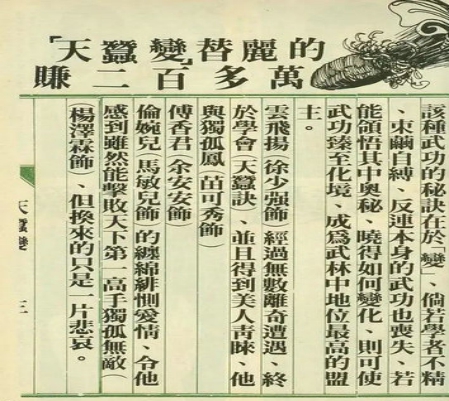 「天蠶變」替麗的
賺二百多萬
該種武功的秘訣在於「變」、倘若學者不精
、束繭自縛、反連本身的武功也喪失、若
能領悟其中奧秘、曉得如何變化、則可使
武功臻至化境、成爲武林中地位最高的盟
主。
雲飛揚(徐少强飾)經過無數離奇遭遇、終
於學會(天蠶訣)、並且得到美人青睞、他
與獨孤鳳(苗可秀飾)
傅香君(余安安飾)
倫婉兒(馬敏兒飾)的纏綿緋惻愛情、令他
感到雖然能擊敗天下第一高手獨孤無敵(
楊澤霖飾)、但換來的只是一片悲哀。
天蠶變
三